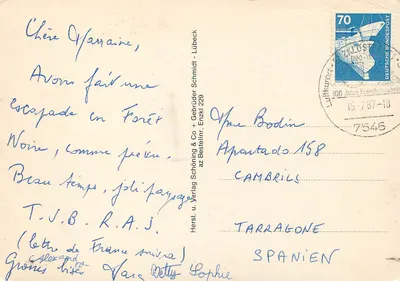 Chère Marraine,
Avons fait une
escapade en Forêt
Noire, comme prévu.
Beau temps, joli paysage
T.J.B. R.A.J.
(lettre de France suivra)
Grosses bises
Sophie
Herst. u. Verlag Schöning & Co + Gebrüder Schmidt - Lübeck
az Bestellnr. Enzkl 229
70
DEUTSCHE BUNDESPOST
Luftkurort
15.7.87-10
7546
Mme Bodin
Apartado 158
CAMBRILS
TARRAGONE
SPANIEN